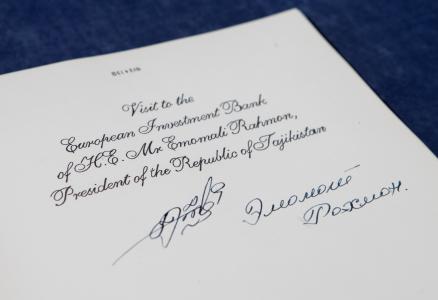 Visit to the
European Investment Bank
of H.E. Mr Emomali Rahmon,
President of the Republic of Tajikistan
Эмомалӣ
Рахмон.